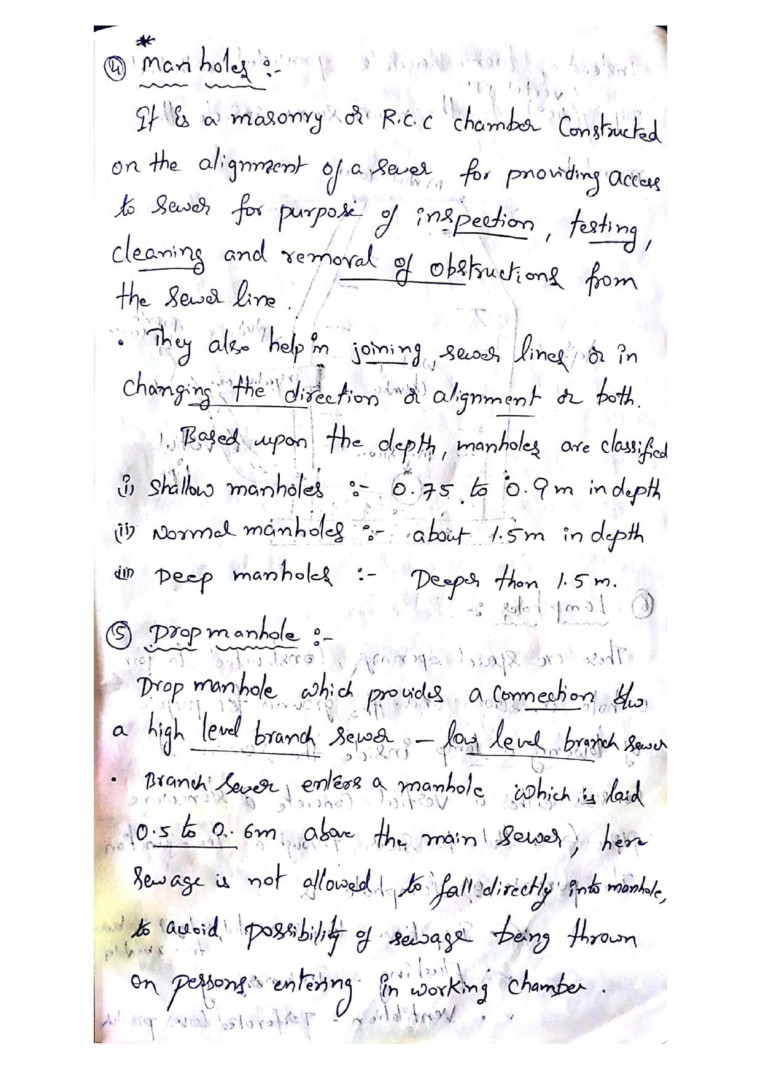 *
④ Manholes :-
It is a masonry or R.C.C chamber Constructed
on the alignment of a sewer for providing access
to sewer for purpose of inspection, testing,
cleaning and removal of obstructions from
the sewer line.
• They also help in joining sewer lines or in
changing the direction or alignment or both.
Based upon the depth, manholes are classified
i) Shallow manholes :- 0.75 to 0.9m in depth
(ii) Normal manholes :- about 1.5m in depth
(iii) Deep manholes :- Deeper than 1.5m.
⑤ Drop manhole :-
Drop manhole which provides a connection b/w
a high level branch sewer - low level branch sewer
• Branch sewer enters a manhole which is laid
0.5 to 0.6m above the main sewer, here
sewage is not allowed to fall directly into manhole,
to avoid possibility of sewage being thrown
on persons entering in working chamber.